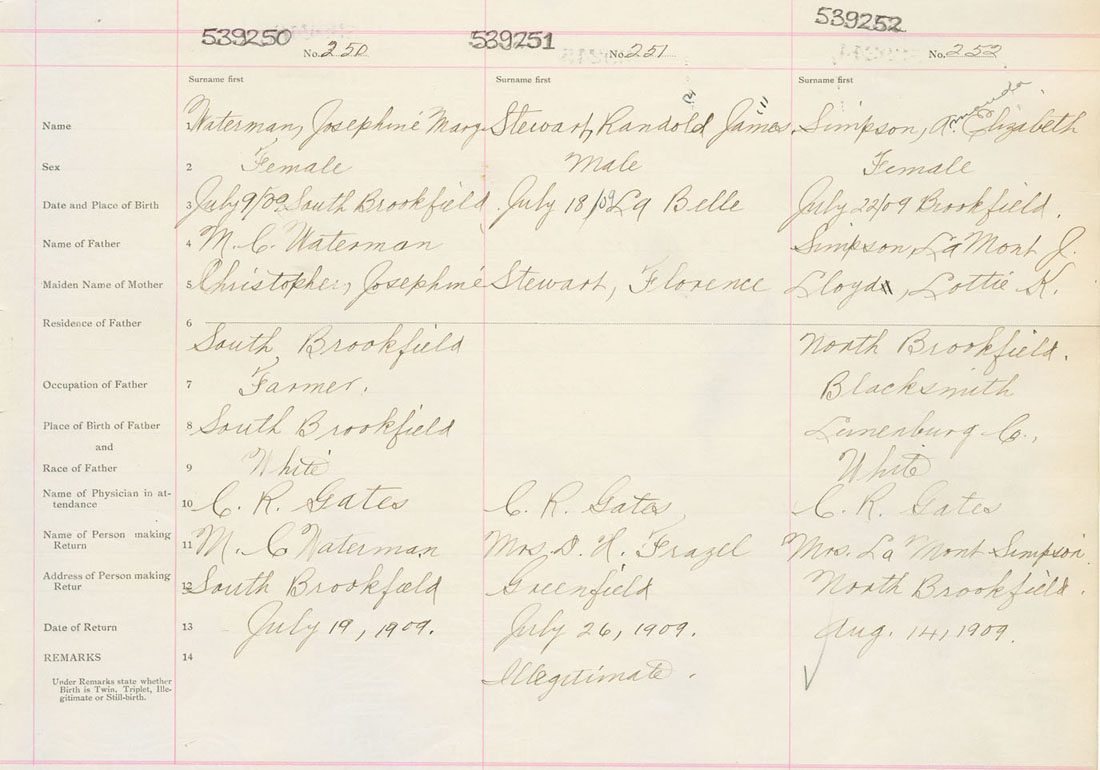 539250 No. 250 539251 No. 251 539252 No. 252
Surname first Surname first Surname first
Name 1 Waterman, Josephine Mary Stewart, Randold James Simpson, Amanda Elizabeth
Sex 2 Female Male Female
Date and Place of Birth 3 July 9/09 South Brookfield July 18/09 La Belle July 22/09 Brookfield.
Name of Father 4 M. C. Waterman Simpson, La Mont J.
Maiden Name of Mother 5 Christopher, Josephine Stewart, Florence Lloyd, Lottie K.
Residence of Father 6
South Brookfield North Brookfield.
Occupation of Father 7 Farmer. Blacksmith
Place of Birth of Father 8 South Brookfield Lunenburg Co.,
and
Race of Father 9 White White
Name of Physician in at-
tendance 10 C. R. Gates C. R. Gates C. R. Gates
Name of Person making
Return 11 M. C Waterman Mrs. D. H. Frazel Mrs. La Mont Simpson
Address of Person making
Retur 12 South Brookfield Greenfield North Brookfield.
Date of Return 13 July 19, 1909. July 26, 1909. Aug. 14, 1909.
REMARKS 14 Illegitimate.
Under Remarks state whether
Birth is Twin, Triplet, Ille-
gitimate or Still-birth.